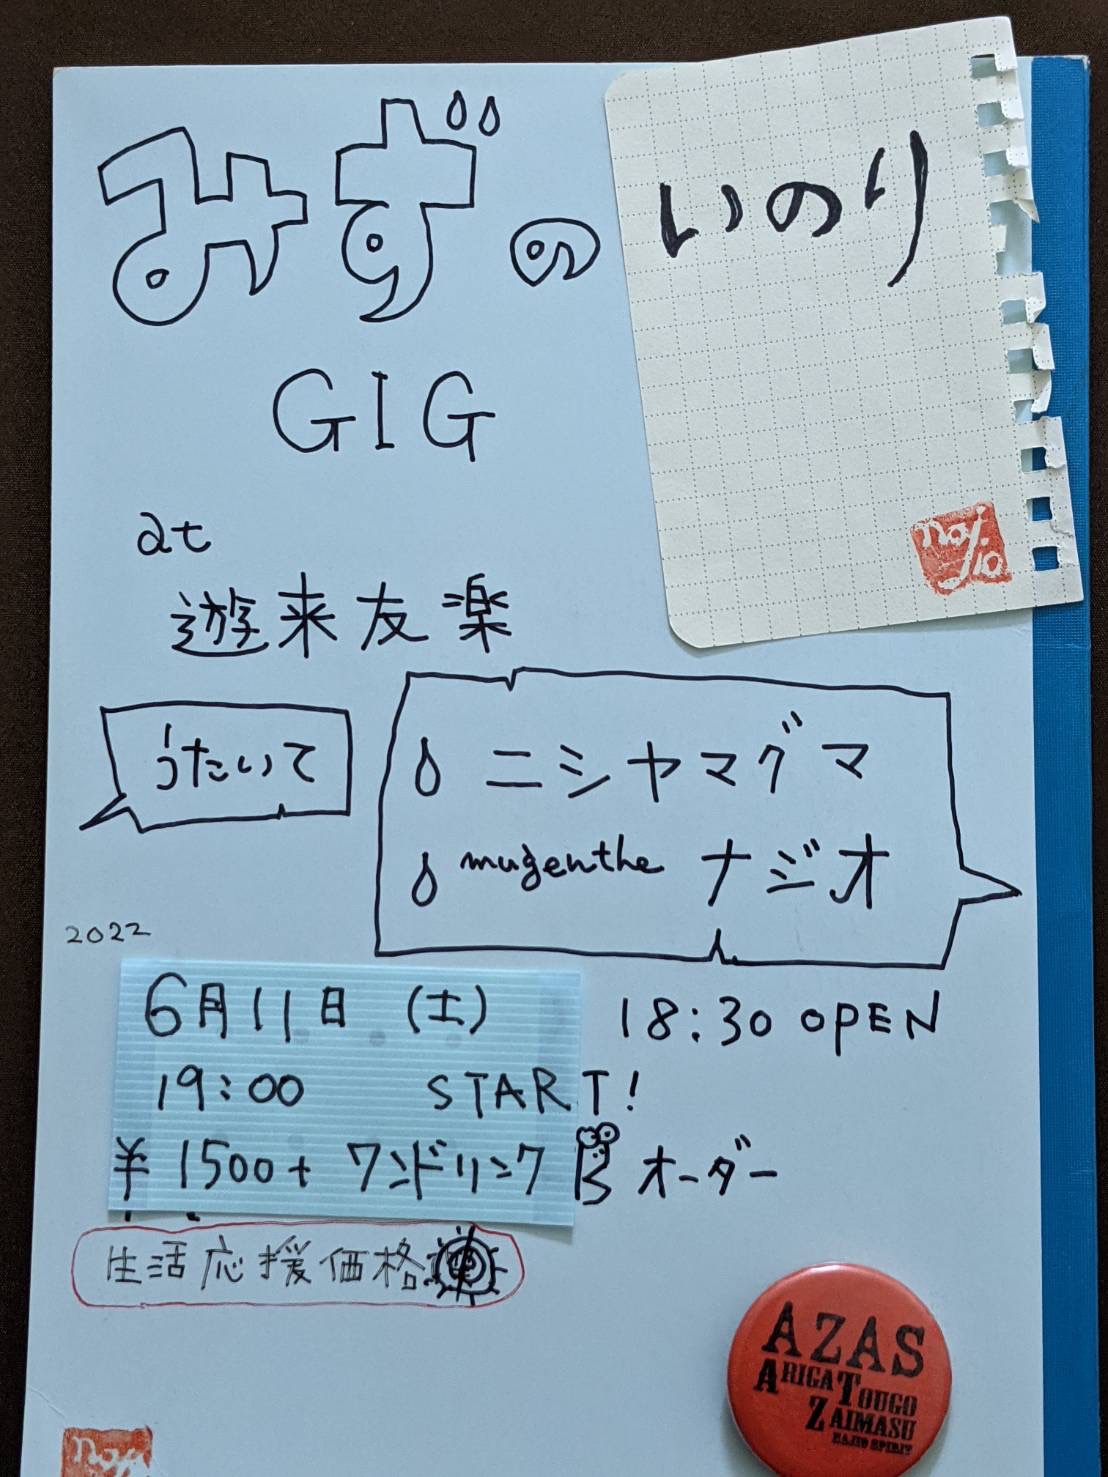 みずの
いのり
GIG
at
遊来友楽
うたいて
ニシヤマグマ
mugenthe ナジオ
2022
6月11日 (土) 18:30 OPEN
19:00 START!
¥1500+ワンドリンク オーダー
生活応援価格
noj.io
AZAS
ARIGATOUGO
ZAIMASU